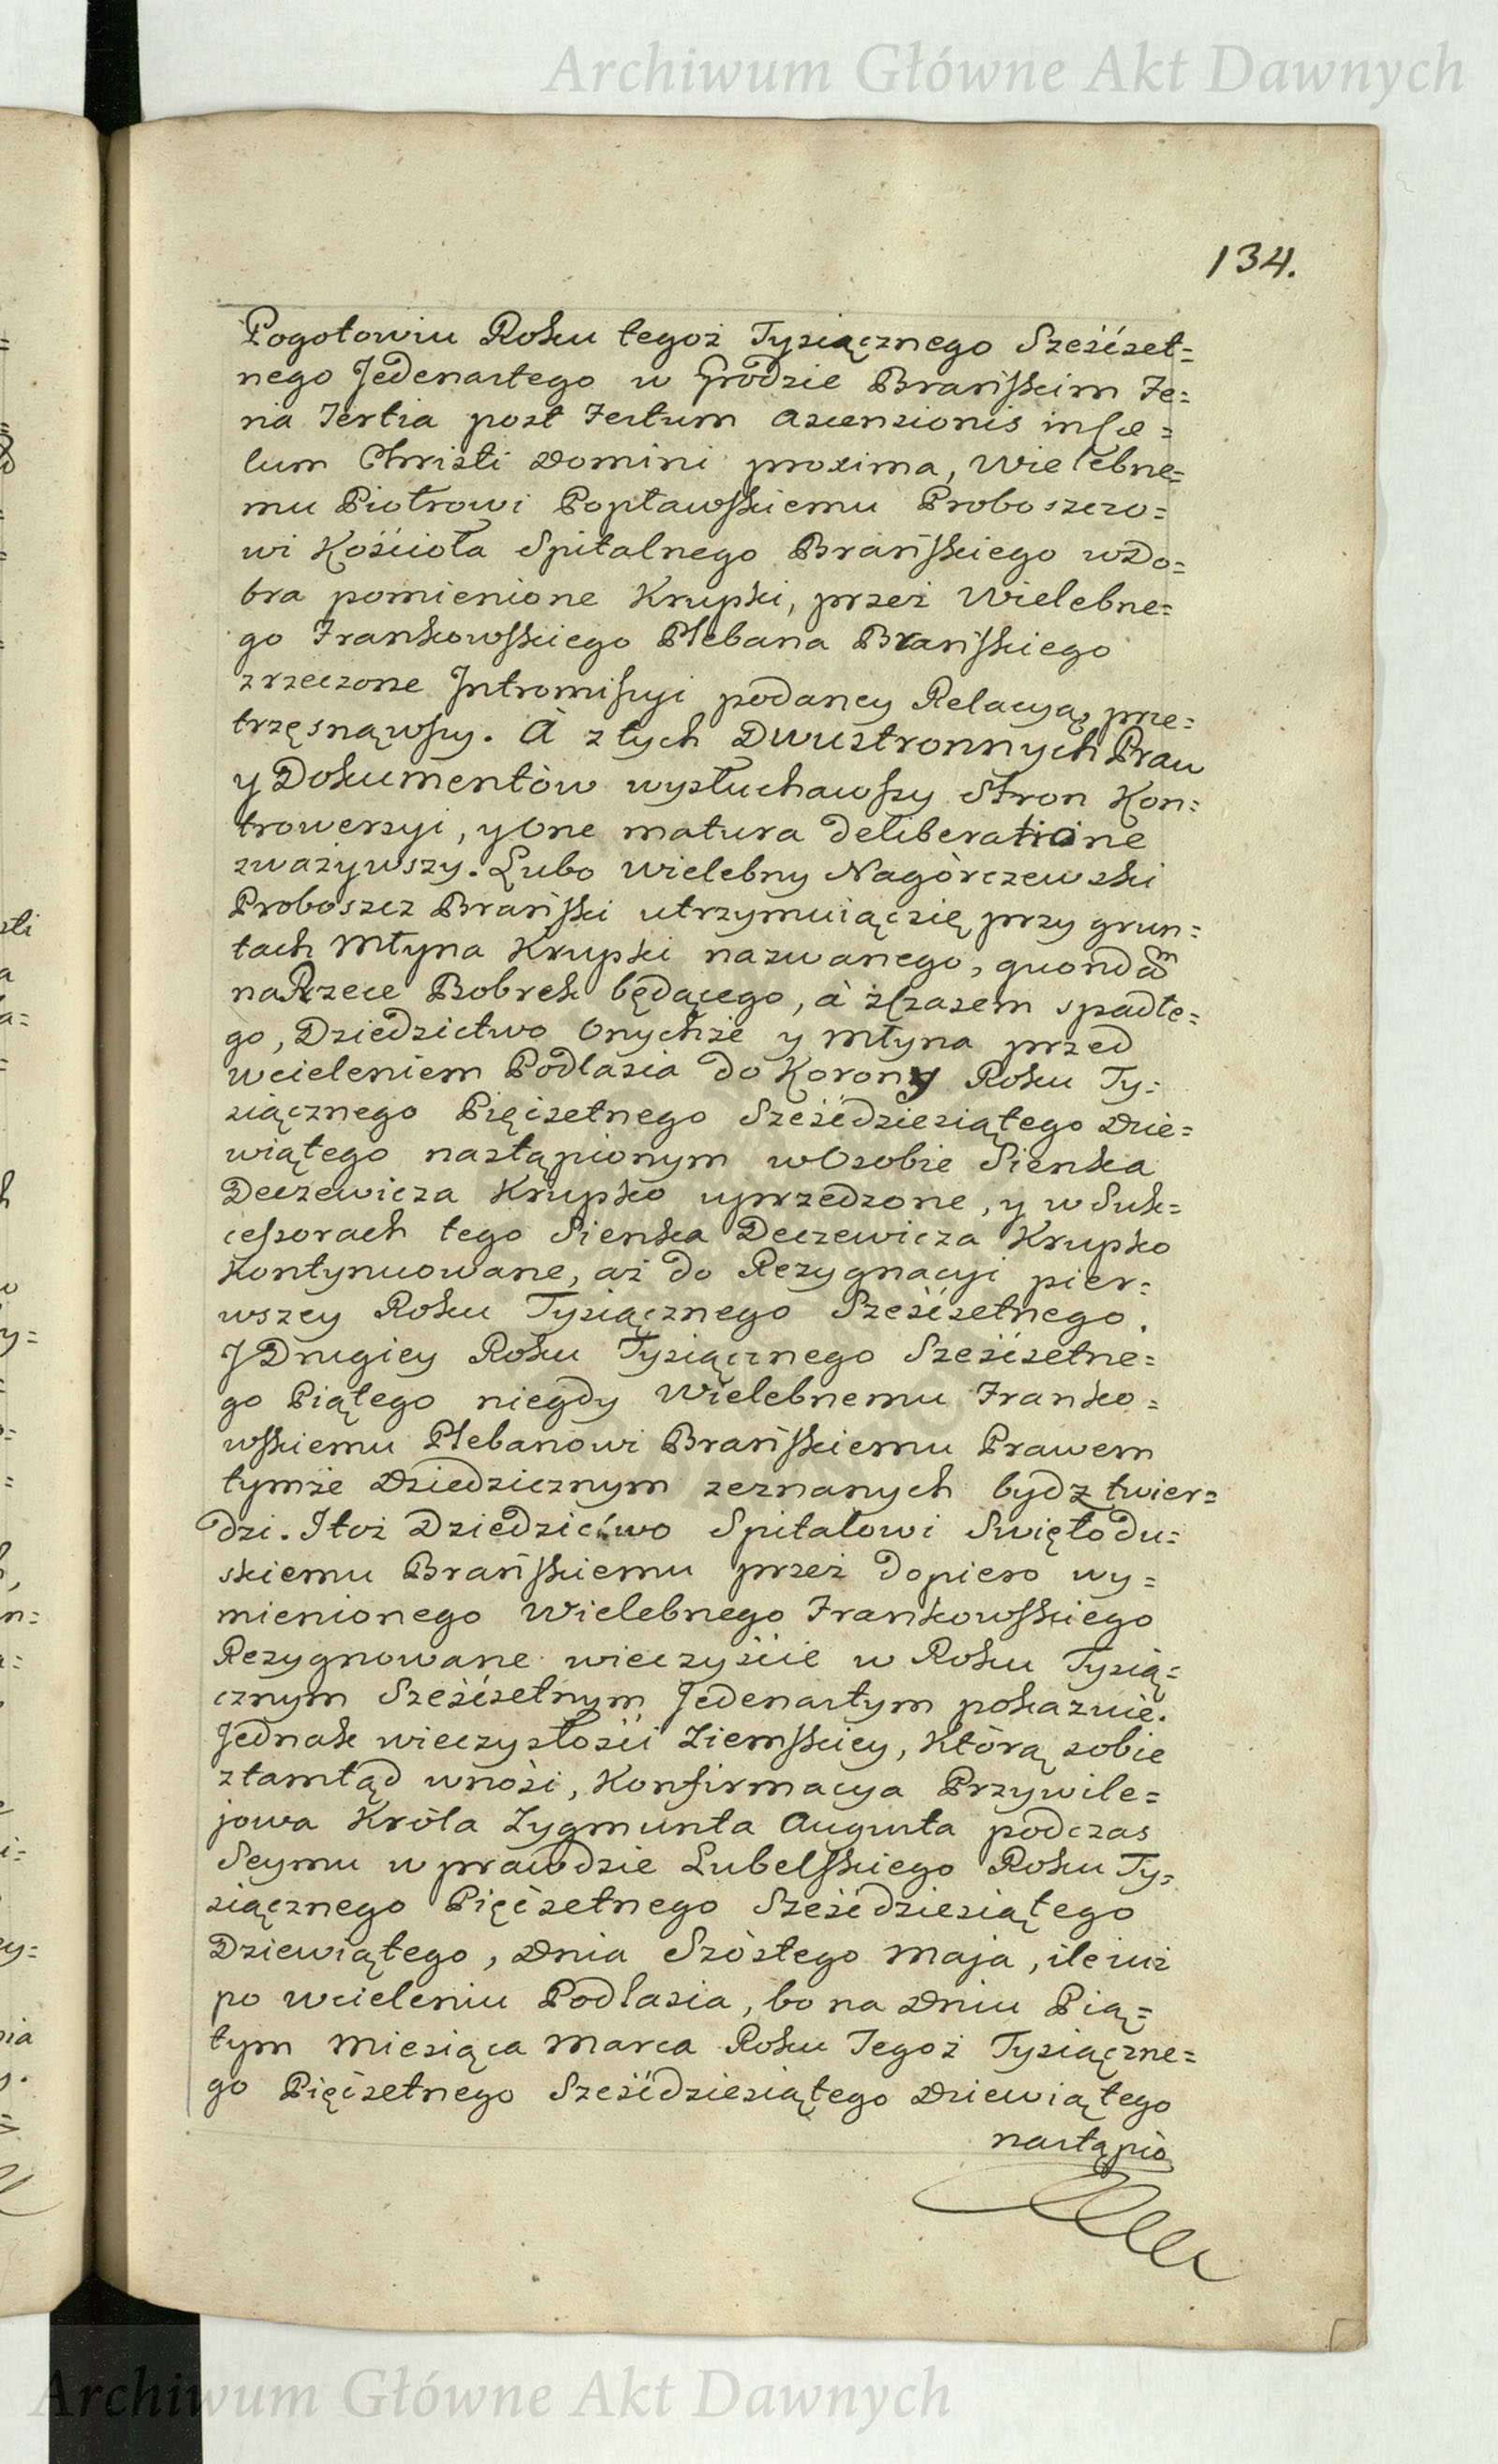 Archiwum Główne Akt Dawnych
134.
Pogotowiu Roku tegoż Tysiącznego Sześćset=
nego Jedenastego w Grodzie Brańskim Fe=
ria Tertia post Festum Ascensionis in Cœ=
lum Christi Domini proxima, Wielebne=
mu Piotrowi Popławskiemu Proboszczo=
wi Kościoła Spitalnego Brańskiego w Do=
bra pomienione Krupki, przez Wielebne=
go Frankowskiego Plebana Brańskiego
zrzeczone Intromissyi podaney Relacyą, prze=
trzęsnąwszy. À z tych Dwustronnych Praw
y Dokumentów wysłuchawszy Stron Kon=
trowersyi, y One matura deliberatione
zważywszy. Lubo Wielebny Nagórczewski
Proboszcz Brański utrzymuiąc się przy grun=
tach Młyna Krupki nazwanego, quondam
na Rzece Bobrek będącego, à z Czasem spadłe=
go, Dziedzictwo Onychże y Młyna przed
wcieleniem Podlasia do Korony Roku Ty=
siącznego Pięćsetnego Sześćdziesiątego Dzie=
wiątego nastąpionym w Osobie Sienka
Deczewicza Krupko uprzedzone, y w Suk=
cessorach tego Sienka Deczewicza Krupko
Kontynuowane, aż do Rezygnacyi pier=
wszey Roku Tysiącznego Sześćsetnego.
J Drugiey Roku Tysiącznego Sześćsetne=
go Piątego niegdy Wielebnemu Franko=
wskiemu Plebanowi Brańskiemu Prawem
tymże Dziedzicznym zeznanych bydz twier=
dzi. I toż Dziedzictwo Spitalowi Swiętodu=
skiemu Brańskiemu przez dopiero wy=
mienionego Wielebnego Frankowskiego
Rezygnowane wieczyście w Roku Tysią=
cznym Sześćsetnym Jedenastym pokazuie.
Jednak wieczystości Ziemskiey, Którą sobie
ztamtąd wnosi, Konfirmacya Przywile=
jowa Króla Zygmunta Augusta podczas
Seymu w prawdzie Lubelskiego Roku Ty=
siącznego Pięćsetnego Sześćdziesiątego
Dziewiątego, Dnia Szóstego Maja, ile iuż
po wcieleniu Podlasia, bo na Dniu Pią=
tym Miesiąca Marca Roku Tegoż Tysiączne=
go Pięćsetnego Sześćdziesiątego Dziewiątego
nastąpio
Archiwum Główne Akt Dawnych